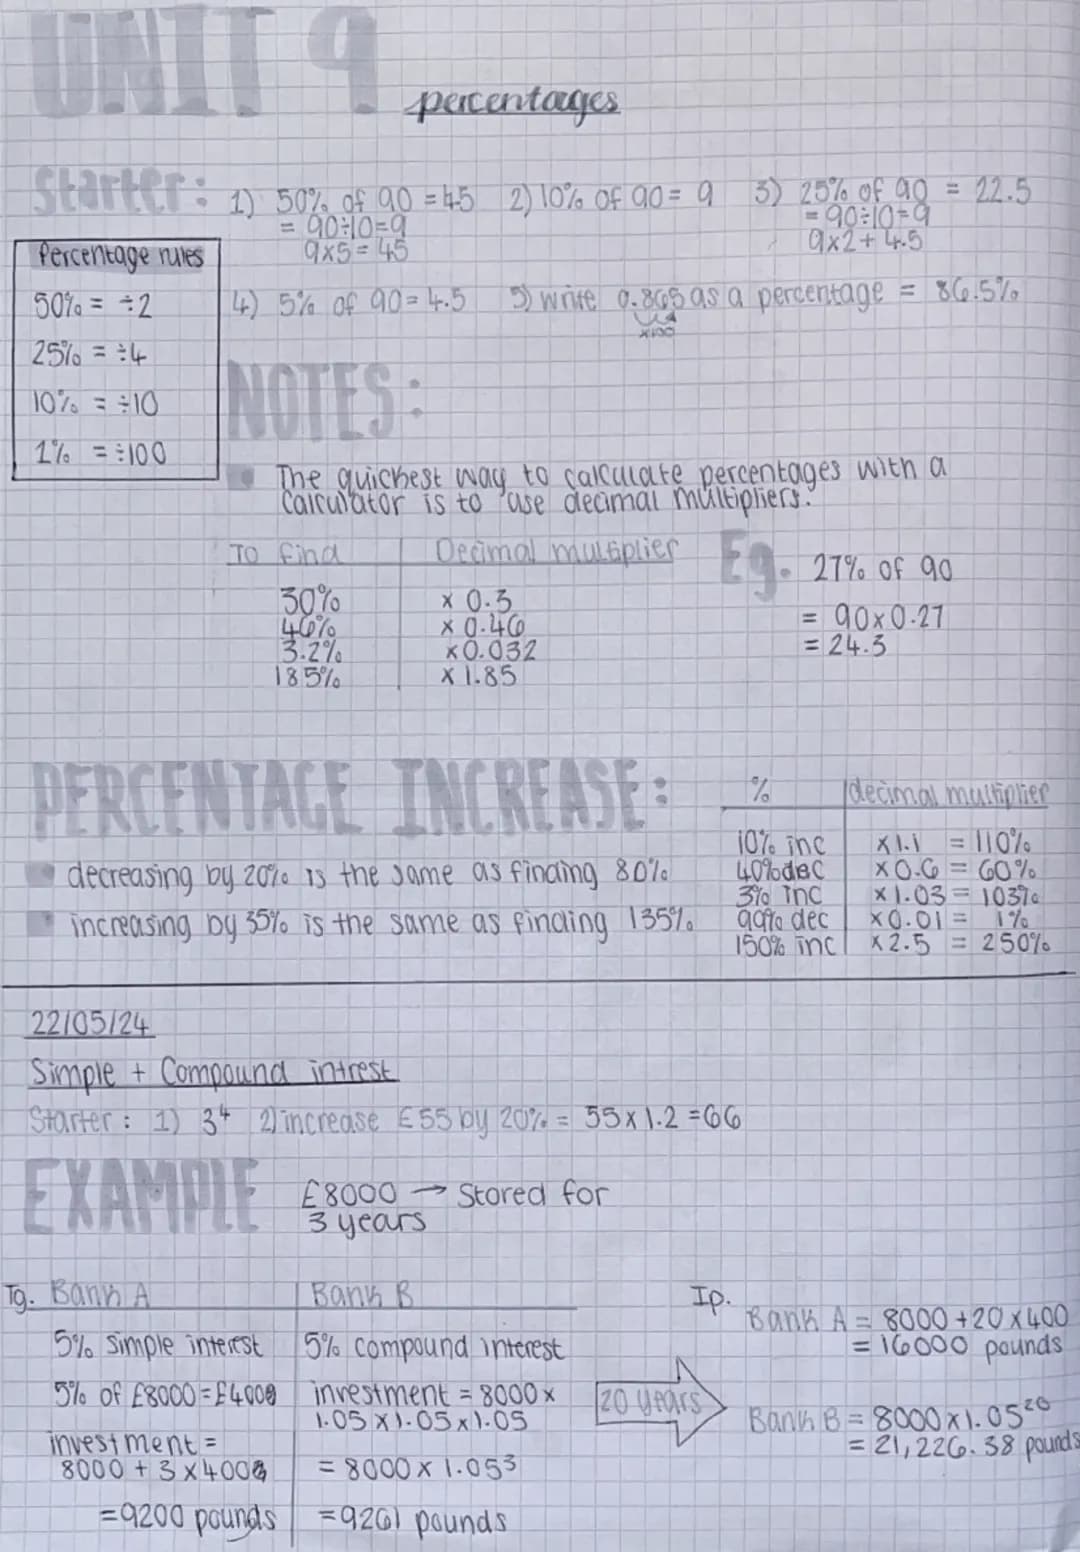 UNIT 9
percentages
Starter: 1) 50% of 90 = 45 2) 10% of 90 = 9 3) 25% of 90 = 22.5
= 90÷10=9 = 90÷10=9
9x5 = 45 9x2 + 4.5
Percentage rules
50% = ÷2
25% = ÷4
10% = ÷10
1% = ÷100
4) 5% of 90 = 4.5 5) write 0.865 as a percentage = 86.5%
x100
NOTES:
The quickest way to calculate percentages with a
calculator is to use decimal multipliers.
To find Decimal multiplier
30% x 0.3
46% x 0.46
3.2% x0.032
185% x 1.85
Eg. 27% of 90
= 90x0.27
= 24.3
PERCENTAGE INCREASE:
decreasing by 20% is the same as finding 80%
increasing by 35% is the same as finding 135%
% decimal multiplier
10% inc x1.1 = 110%
40% dec x0.6 = 60%
3% inc x1.03 = 103%
99% dec x0.01 = 1%
150% inc x2.5 = 250%
22/05/24
Simple + Compound intrest
Starter: 1) 3⁴ 2) increase £55 by 20% = 55x1.2 =66
EXAMPLE £8000 → Stored for
3 years
Tg. Bank A
5% simple interest
5% of £8000 = £400
investment =
8000 + 3 x 400
=9200 pounds
Bank B
5% compound interest
investment = 8000x
1.05 x1.05 x1.05
= 8000 x 1.05³
=9261 pounds
20 years
Ip.
Bank A = 8000 +20x400
= 16000 pounds
Bank B = 8000x1.05²⁰
= 21,226.38 pounds